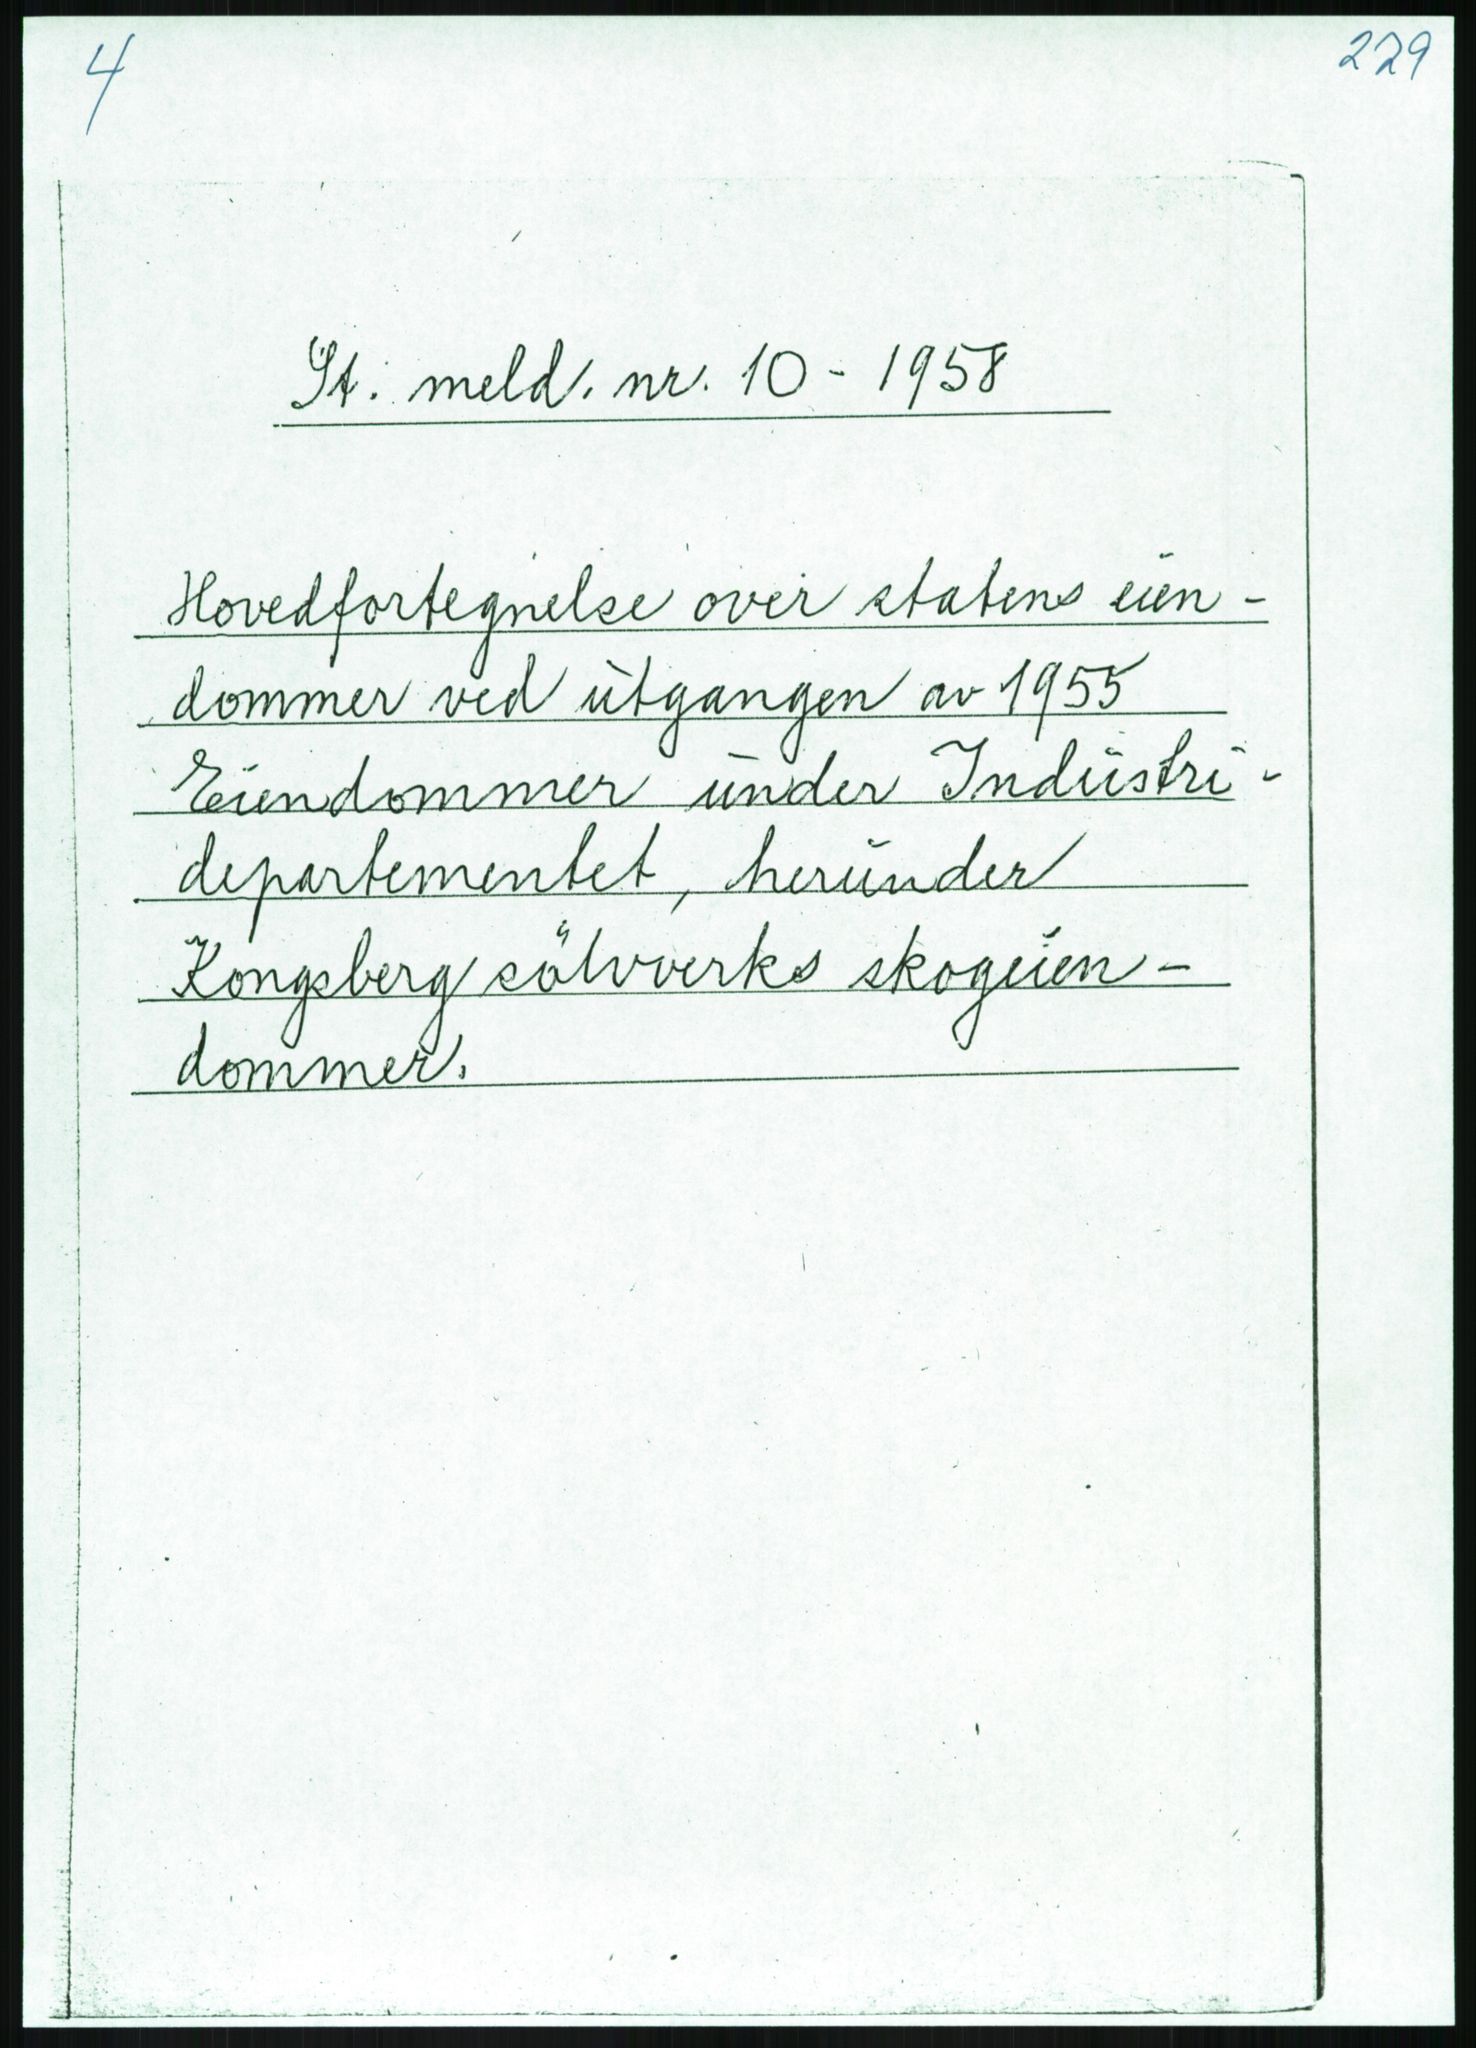 4
229
St. meld. nr. 10 - 1958
Hovedfortegnelse over statens eien-
dommer ved utgangen av 1955
Eiendommer under Industri-
departementet, herunder
Kongsberg sölvverks skogeien-
dommer.